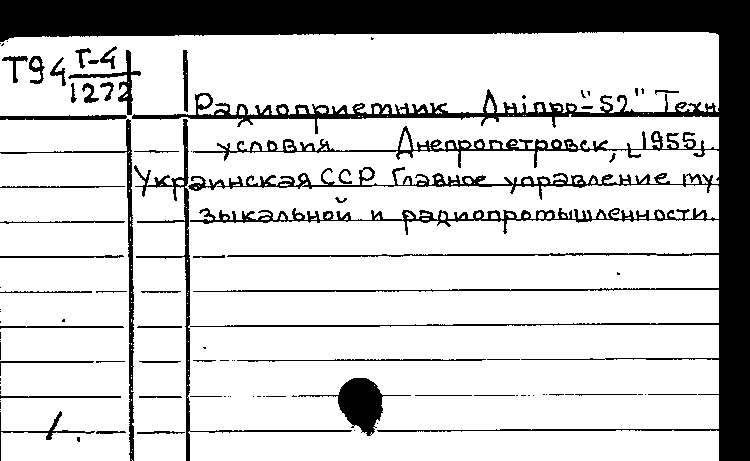 Т94 Г-4
1272
Радиоприемник „Днiпро-52" Техн
условия Днепропетровск, [1955].
Украинская ССР Главное управление му-
зыкальной и радиопромышленности.
1.